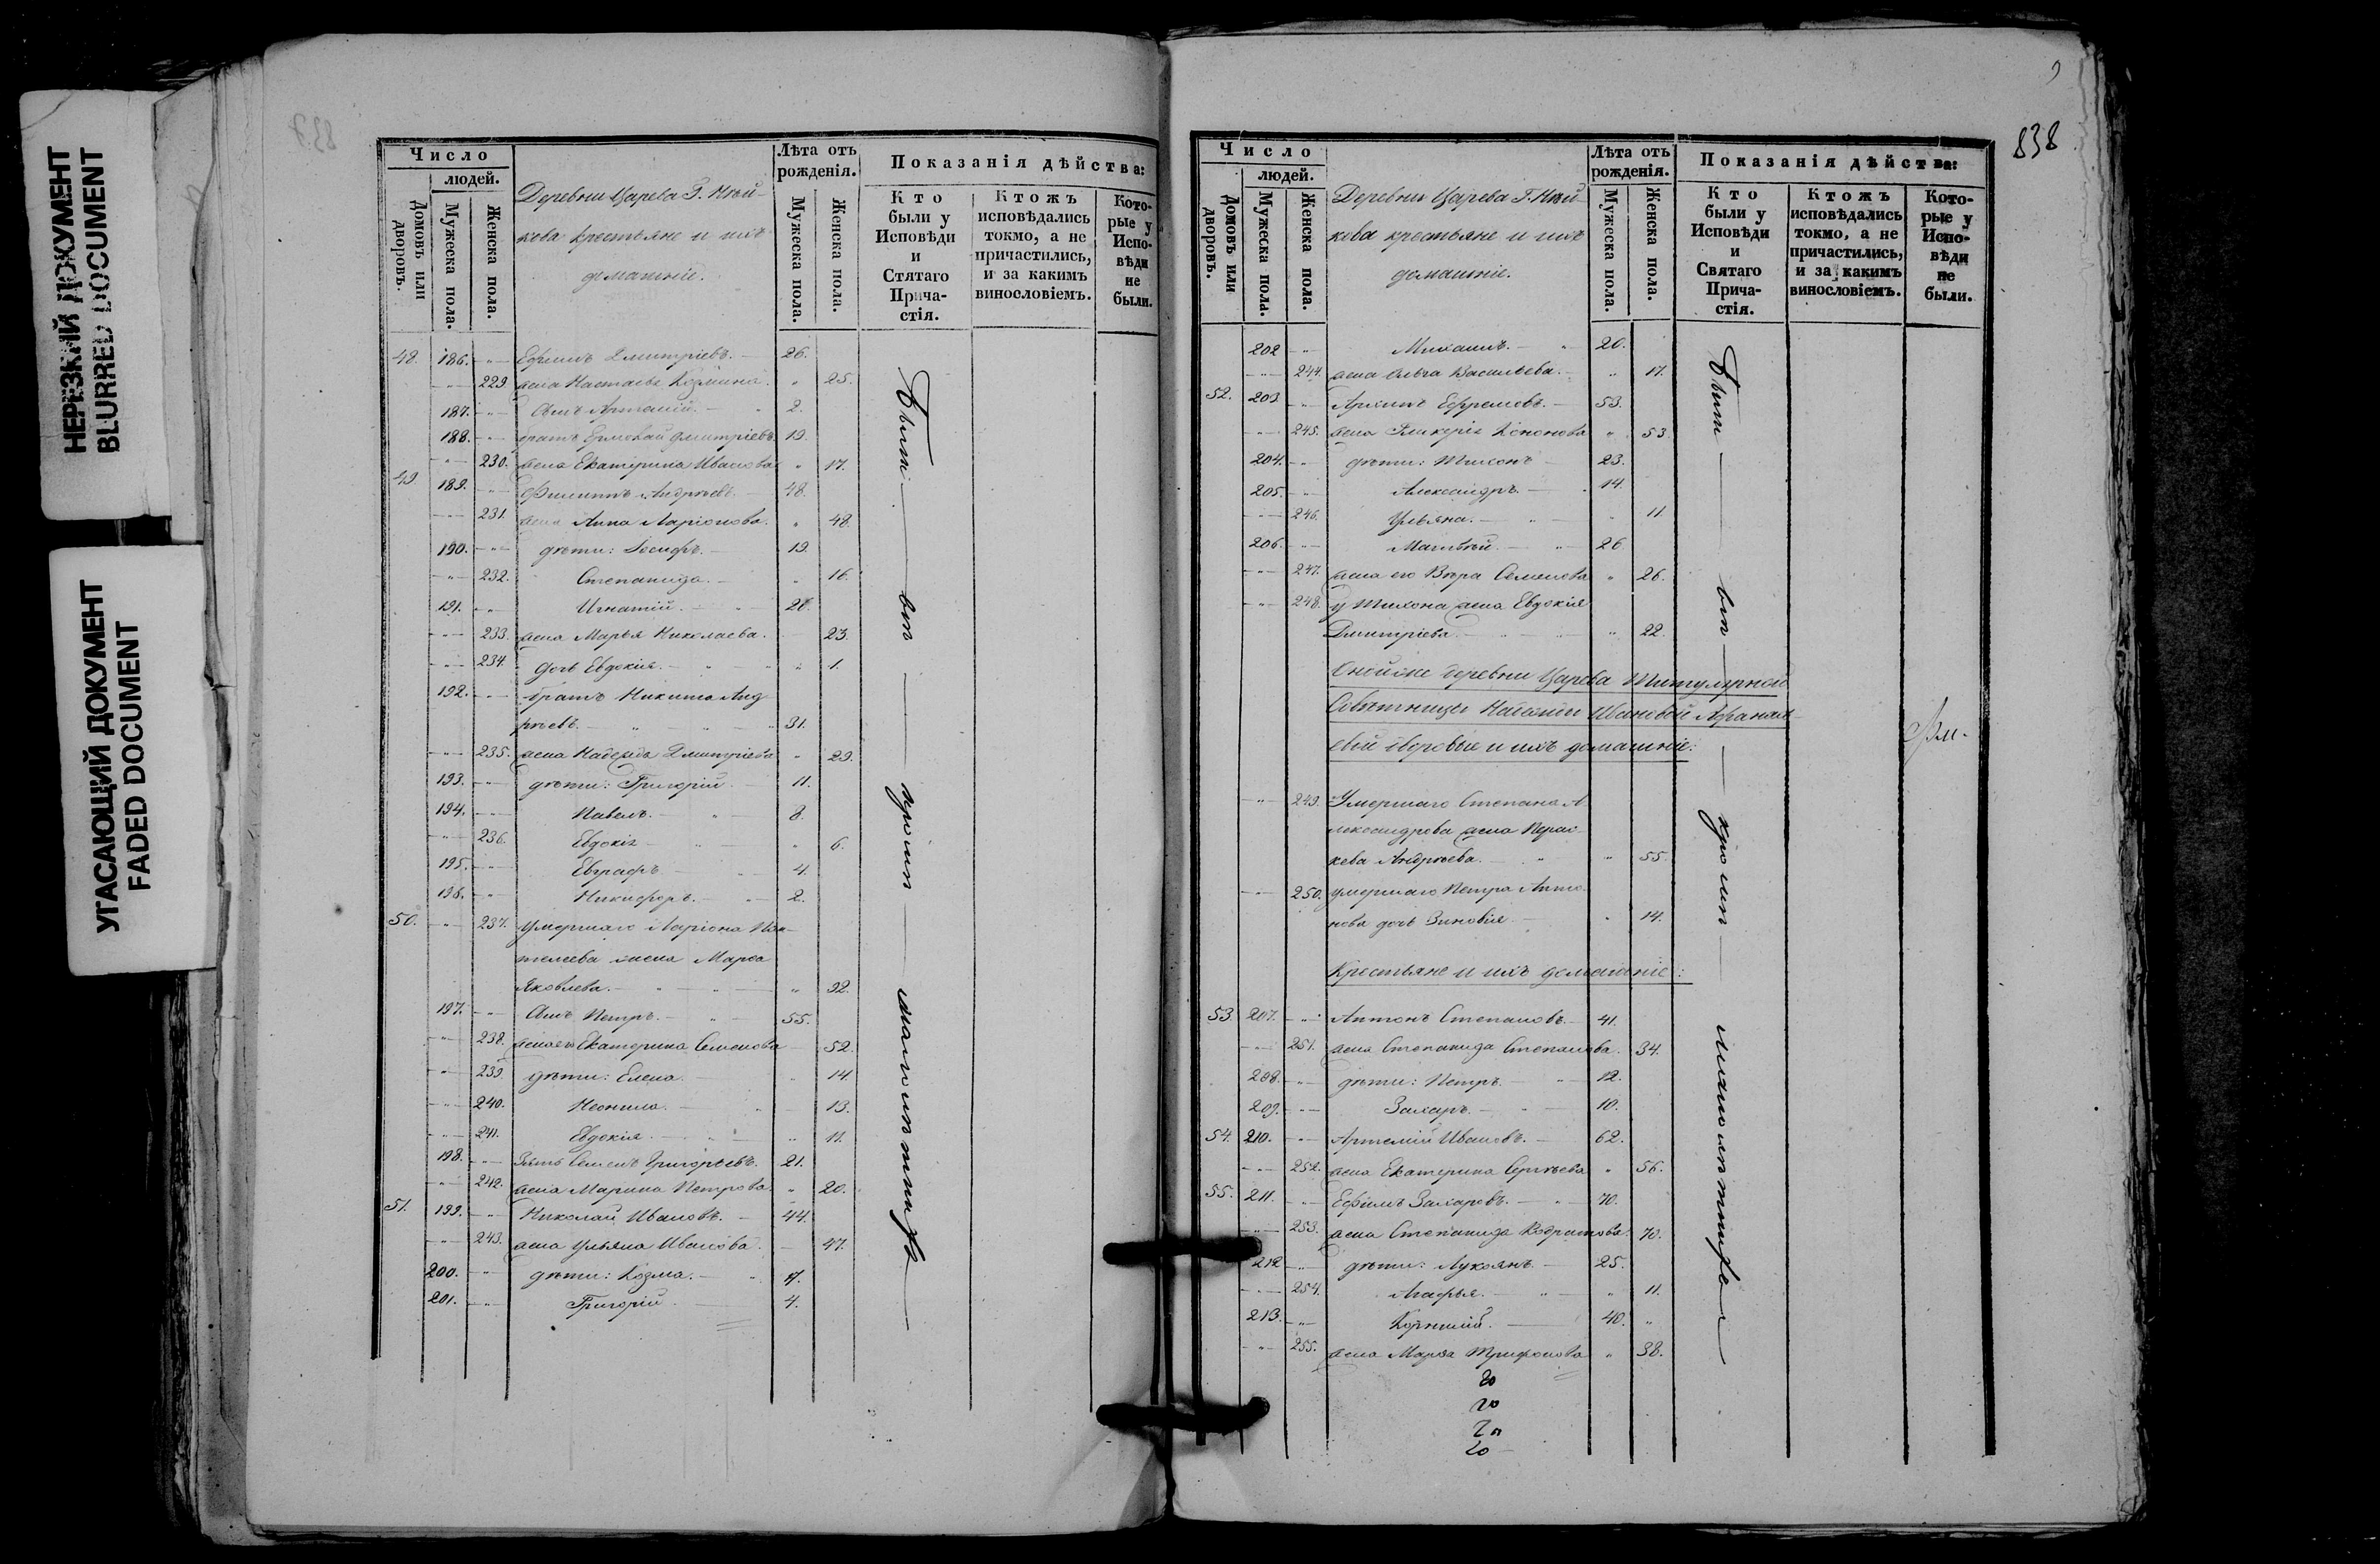 НЕРЕЗКИЙ ДОКУМЕНТ
BLURRED DOCUMENT
УГАСАЮЩИЙ ДОКУМЕНТ
FADED DOCUMENT
Число
людей.
Домовъ или дворовъ.
Мужеска пола.
Женска пола.
Деревни Царева Г.
крестьяне и ихъ
домашніе.
Лѣта отъ рожденія.
Мужеска пола.
Женска пола.
Показанія дѣйства:
Кто были у Исповѣди и Стятаго Прича-стія.
Ктожъ исповѣдались токмо, а не причастились, и за какимъ винословіемъ.
Кото-рые у Испо-вѣди не были.
48. 186. Ефимъ Дмитріевъ. 26.
229. жена Настасья 25.
187. сынъ Артемій. 2.
188. братъ Ермолай Дмитріевъ. 19.
230. жена Екатерина Иванова 17.
49. 189. Филиппъ Андреевъ. 48.
231. жена Анна Ларіонова. 48.
190. дѣти: Іосифъ. 19.
232. Степанида. 16.
191. Игнатій. 26.
233. жена Марья Николаева. 23.
234. дочь Евдокія. 1.
192. братъ Никита Анд-
рѣевъ. 31.
235. жена Надежда Дмитріева 29.
193. дѣти: Григорій 11.
194. Павелъ. 8.
236. Евдокія 6.
195. Евграфъ 4.
196. Никифоръ. 2.
50. 237. умершаго Ларіона Пан-
телеева жена Марѳа
Яковлева. 92.
197. Сынъ Петръ. 55.
238. жена его Екатерина Семенова 52.
239. дѣти: Елена. 14.
240. Неонила. 13.
241. Евдокія. 11.
198. Зять Семенъ Григорьевъ. 21.
242. жена Марина Петрова 20.
51. 199. Николай Ивановъ. 44.
243. жена Ульяна Иванова. 47.
200. дѣти: Козма. 17.
201. Григорій. 4.
Были
вси
кромѣ
малолѣтнихъ
838
Число
людей.
Домовъ или дворовъ.
Мужеска пола.
Женска пола.
Деревни Царева Г.
крестьяне и ихъ
домашніе.
Лѣта отъ рожденія.
Мужеска пола.
Женска пола.
Показанія дѣйства:
Кто были у Исповѣди и Святаго Прича-стія.
Ктожъ исповѣдались токмо, а не причастились, и за какимъ винословіемъ.
Кото-рые у Испо-вѣди не были.
202 Михаилъ. 20.
244. жена Ольга Васильева. 17.
52. 203. Архипъ Ефремовъ. 53.
245. жена Гликерія Кононова 53
204. дѣти: Тихонъ 23.
205. Александръ. 14.
246. Ульяна. 11.
206. Матвѣй. 26
247. жена его Вѣра Семенова 26.
248. у Тихона жена Евдокія
Дмитріева. 22.
Онойже деревни Царева Титулярной
Совѣтницы Натальи Ивановой Афанась-
евой дворовые и ихъ домашніе:
249. Умершаго Степана А-
лександрова жена Парас-
кева Андрѣева. 55.
250. умершаго Петра Анто-
нова дочь Зиновія 14.
Крестьяне и ихъ домашніе:
53. 207. Антонъ Степановъ. 41.
251. жена Степанида Степанова. 34.
208. дѣти: Петръ. 12.
209. Захаръ. 10.
54. 210. Артемій Ивановъ. 62.
252. жена Екатерина Сергѣева 56.
55. 211. Ефимъ Захаровъ. 70.
253. жена Степанида 70.
212 дѣти: Лукоянъ. 25.
254. Агафья. 11.
213. Корнилій. 40.
255. жена Марѳа Трифонова 38.
Были
вси
кромѣ
малолѣтнихъ